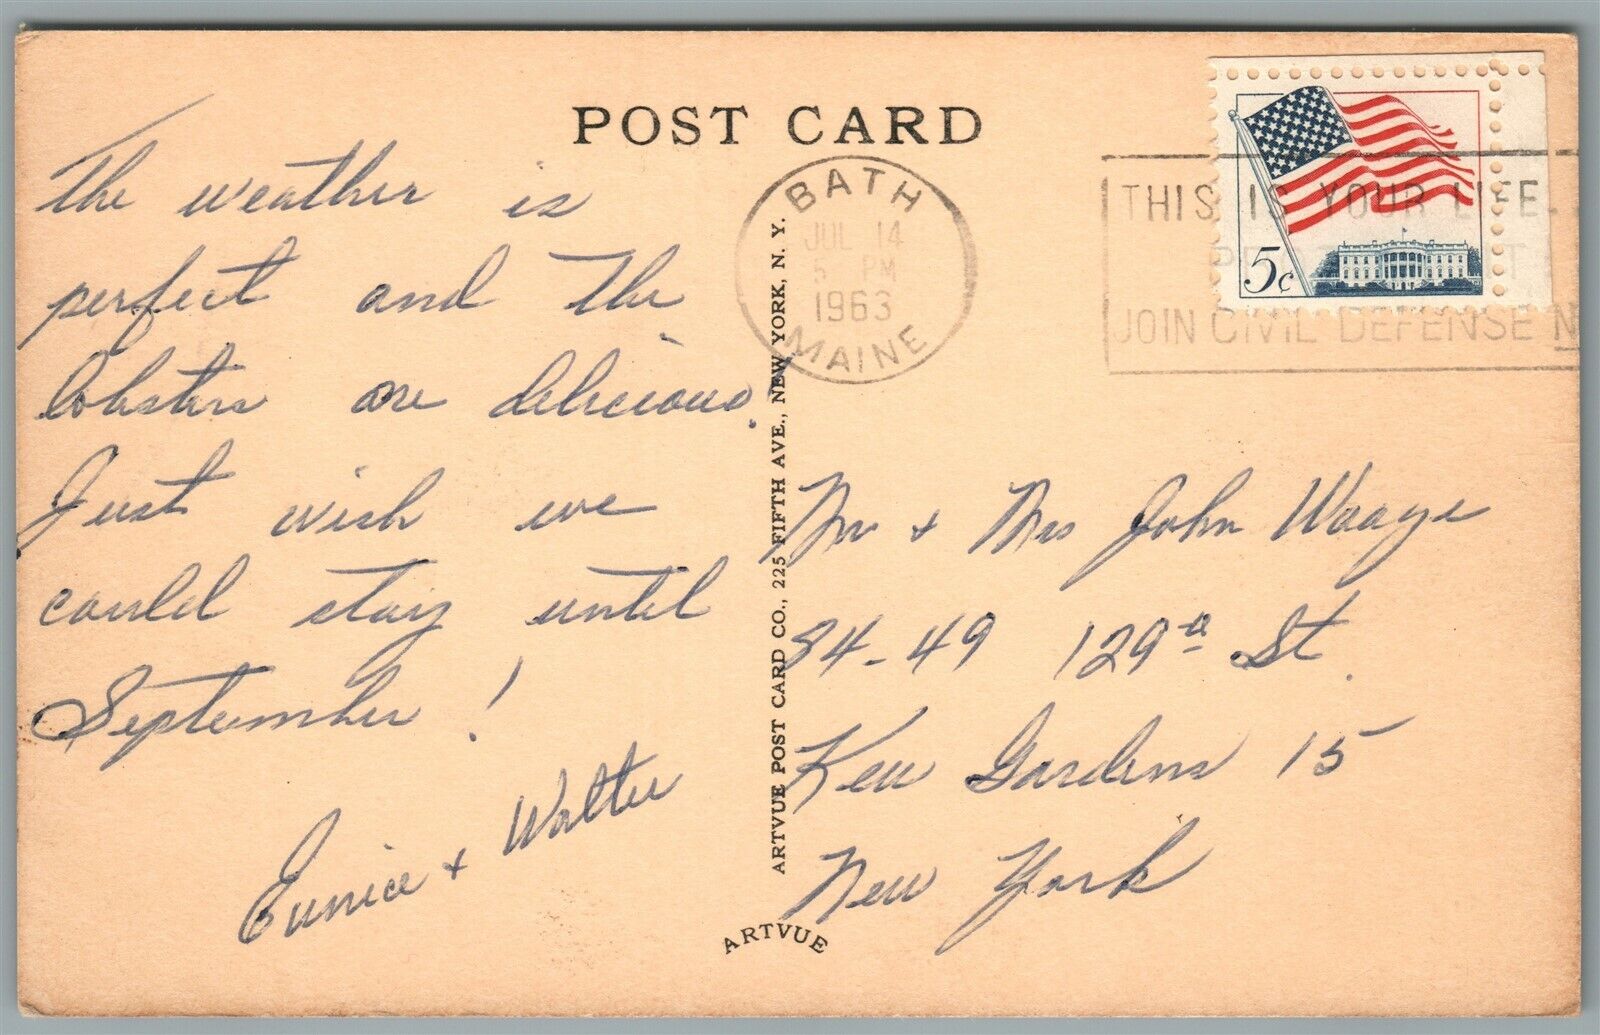 POST CARD
The weather is
perfect and the
lobsters are delicious.
Just wish we
could stay until
September!
Eunice + Walter
BATH
JUL 14
PM
1963
MAINE
THIS IS YOUR LIFE.
JOIN CIVIL DEFENSE
5c
Mr + Mrs John Waage
84-49 129th St.
Kew Gardens 15
New York
ARTVUE POST CARD CO., 225 FIFTH AVE., NEW YORK, N. Y.
ARTVUE